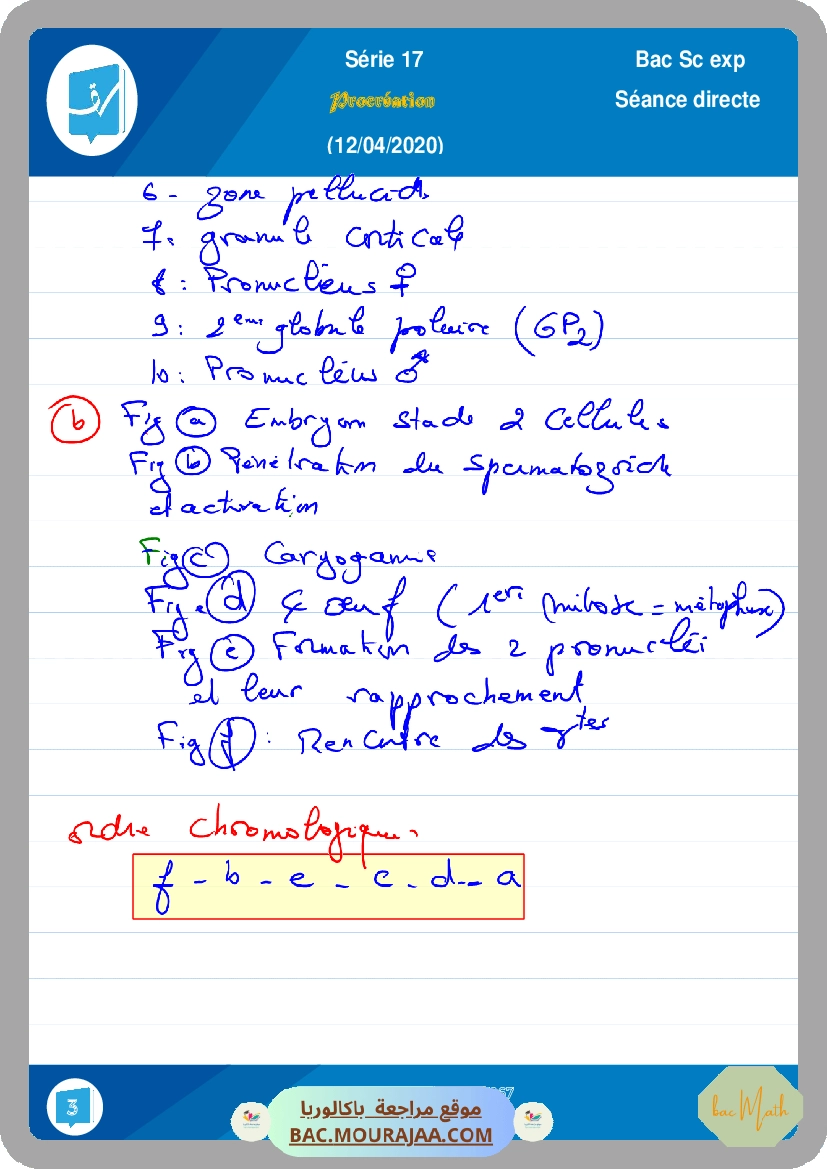 Série 17
Bac Sc exp
Procréation
Séance directe
(12/04/2020)
6 - zone pellucide
7: granule corticale
8 : Pronucléus ♀
9: 2ème globule polaire (GP2)
10: Pronucléus ♂
b Fig a Embryon stade 2 cellules
Fig b Pénétration du spermatozoïde
et activation
Fig c Caryogamie
Fig. d oeuf (1ère mitose = métaphase)
Fig e Formation des 2 pronucléi
et leur rapprochement
Fig f : Rencontre des γtes
ordre chronologique.
f - b - e - c - d - a
3
موقع مراجعة باكالوريا
BAC.MOURAJAA.COM
bac Math